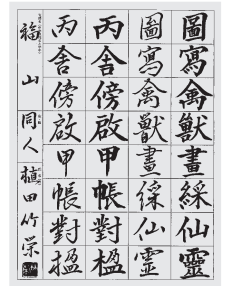 圖寫禽獸畫綵仙靈
圖寫禽獸畫綵仙靈
丙舍傍啟甲帳對楹
丙舍傍啟甲帳對楹
福山 同人 植田竹栄